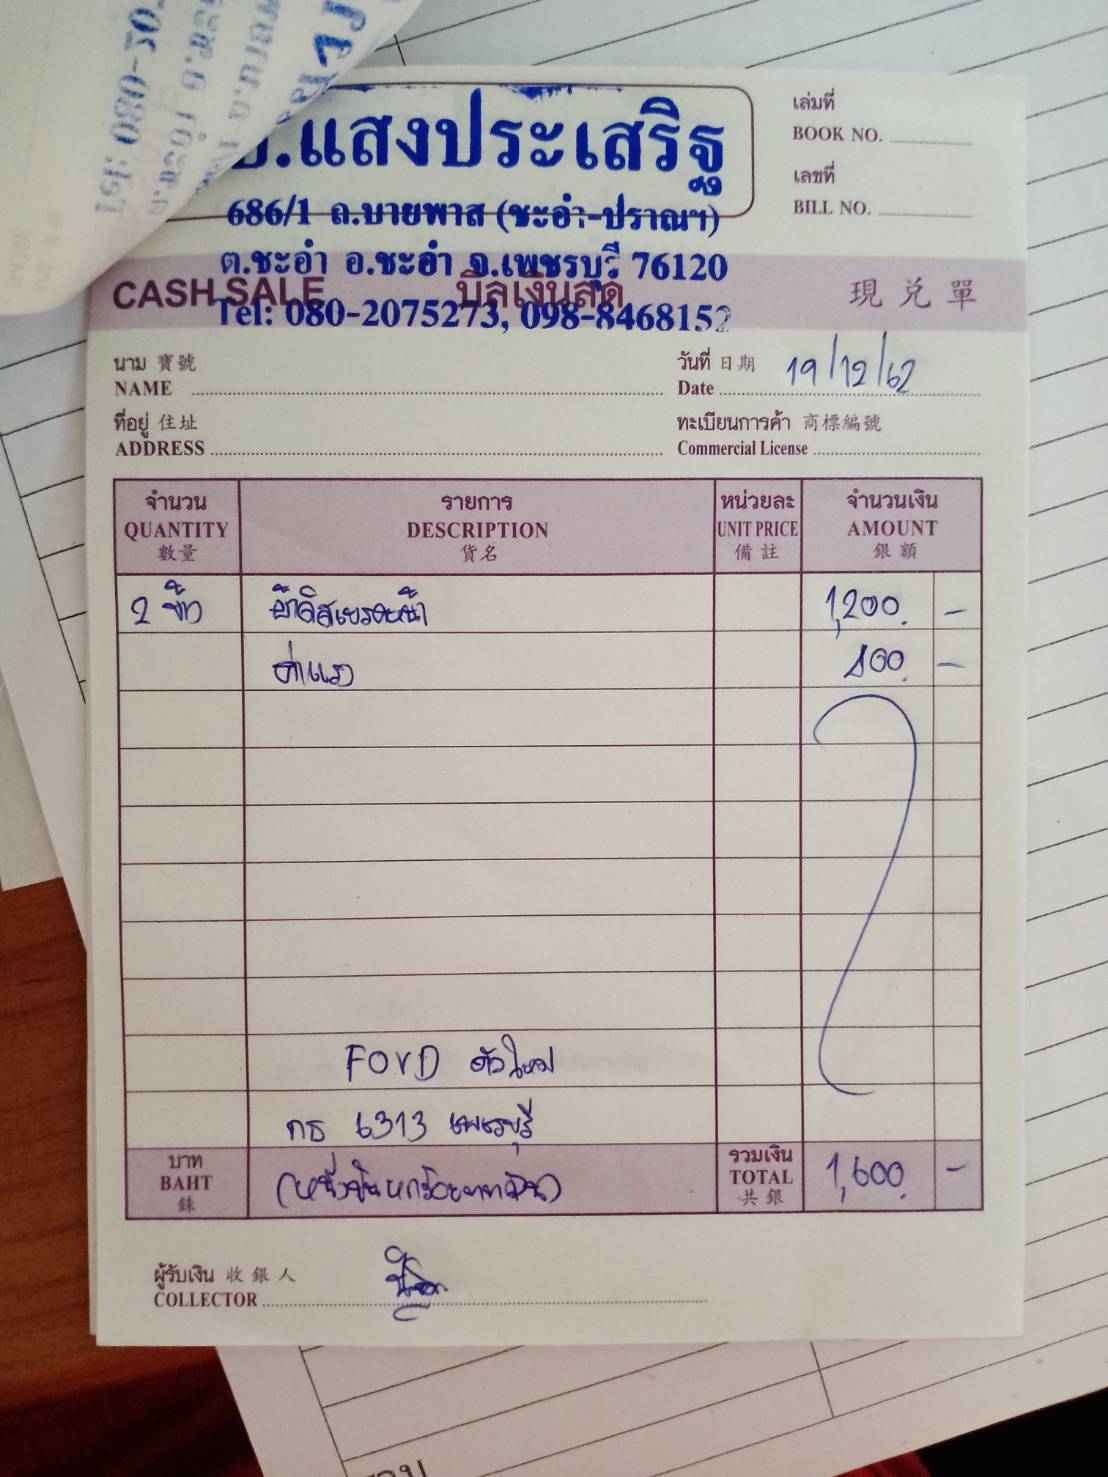 .แสงประเสริฐ
686/1 ถ.บายพาส (ชะอำ-ปราณฯ)
ต.ชะอำ อ.ชะอำ จ.เพชรบุรี 76120
Tel: 080-2075273, 098-8468152
เล่มที่
BOOK NO.
เลขที่
BILL NO.
CASH SALE บิลเงินสด 現兌單
นาม 寶號
NAME
วันที่ 日期 19/12/62
Date
ที่อยู่ 住址
ADDRESS
ทะเบียนการค้า 商標編號
Commercial License
จำนวน รายการ หน่วยละ จำนวนเงิน
QUANTITY DESCRIPTION UNIT PRICE AMOUNT
數量 貨名 備註 銀額
2 1,200 -
ค่าแรง 400 -
FORD ตัวใหม่
กธ 6313 เพชรบุรี
บาท รวมเงิน
BAHT (หนึ่งพันหกร้อยบาทถ้วน) TOTAL 1,600 -
銖 共銀
ผู้รับเงิน 收銀人
COLLECTOR